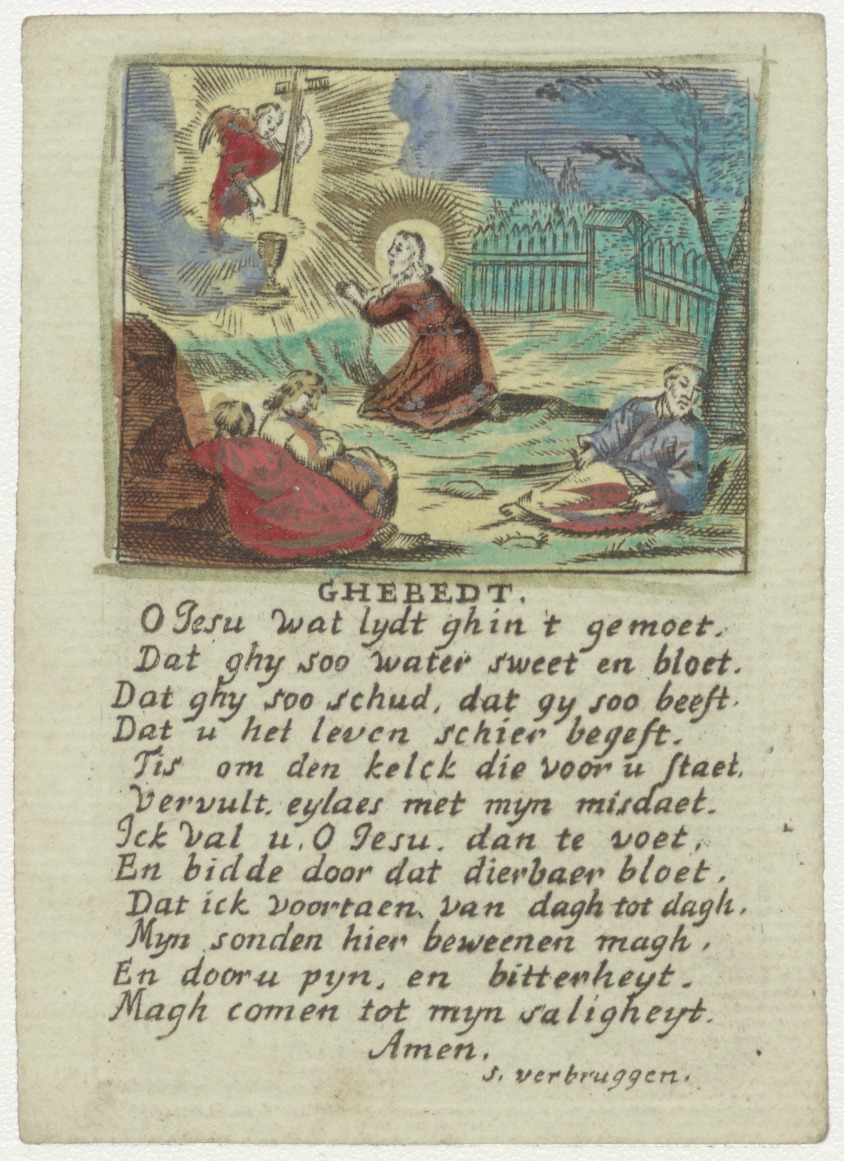 GHEBEDT.
O Jesu wat lydt ghin t gemoet.
Dat ghy soo water sweet en bloet.
Dat ghy soo schud, dat gy soo beeft.
Dat u het leven schier begeft.
Tis om den kelck die voor u staet.
Vervult. eylaes met myn misdaet.
Ick val u. O Jesu. dan te voet,
En bidde door dat dierbaer bloet.
Dat ick voortaen. van dagh tot dagh.
Myn sonden hier beweenen magh.
En door u pyn, en bitterheyt.
Magh comen tot myn saligheyt.
Amen.
s. verbruggen.